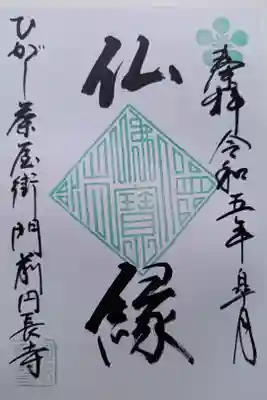 奉拝 令和五年皐月
仏縁
佛寶
ひがし茶屋街門前円長寺